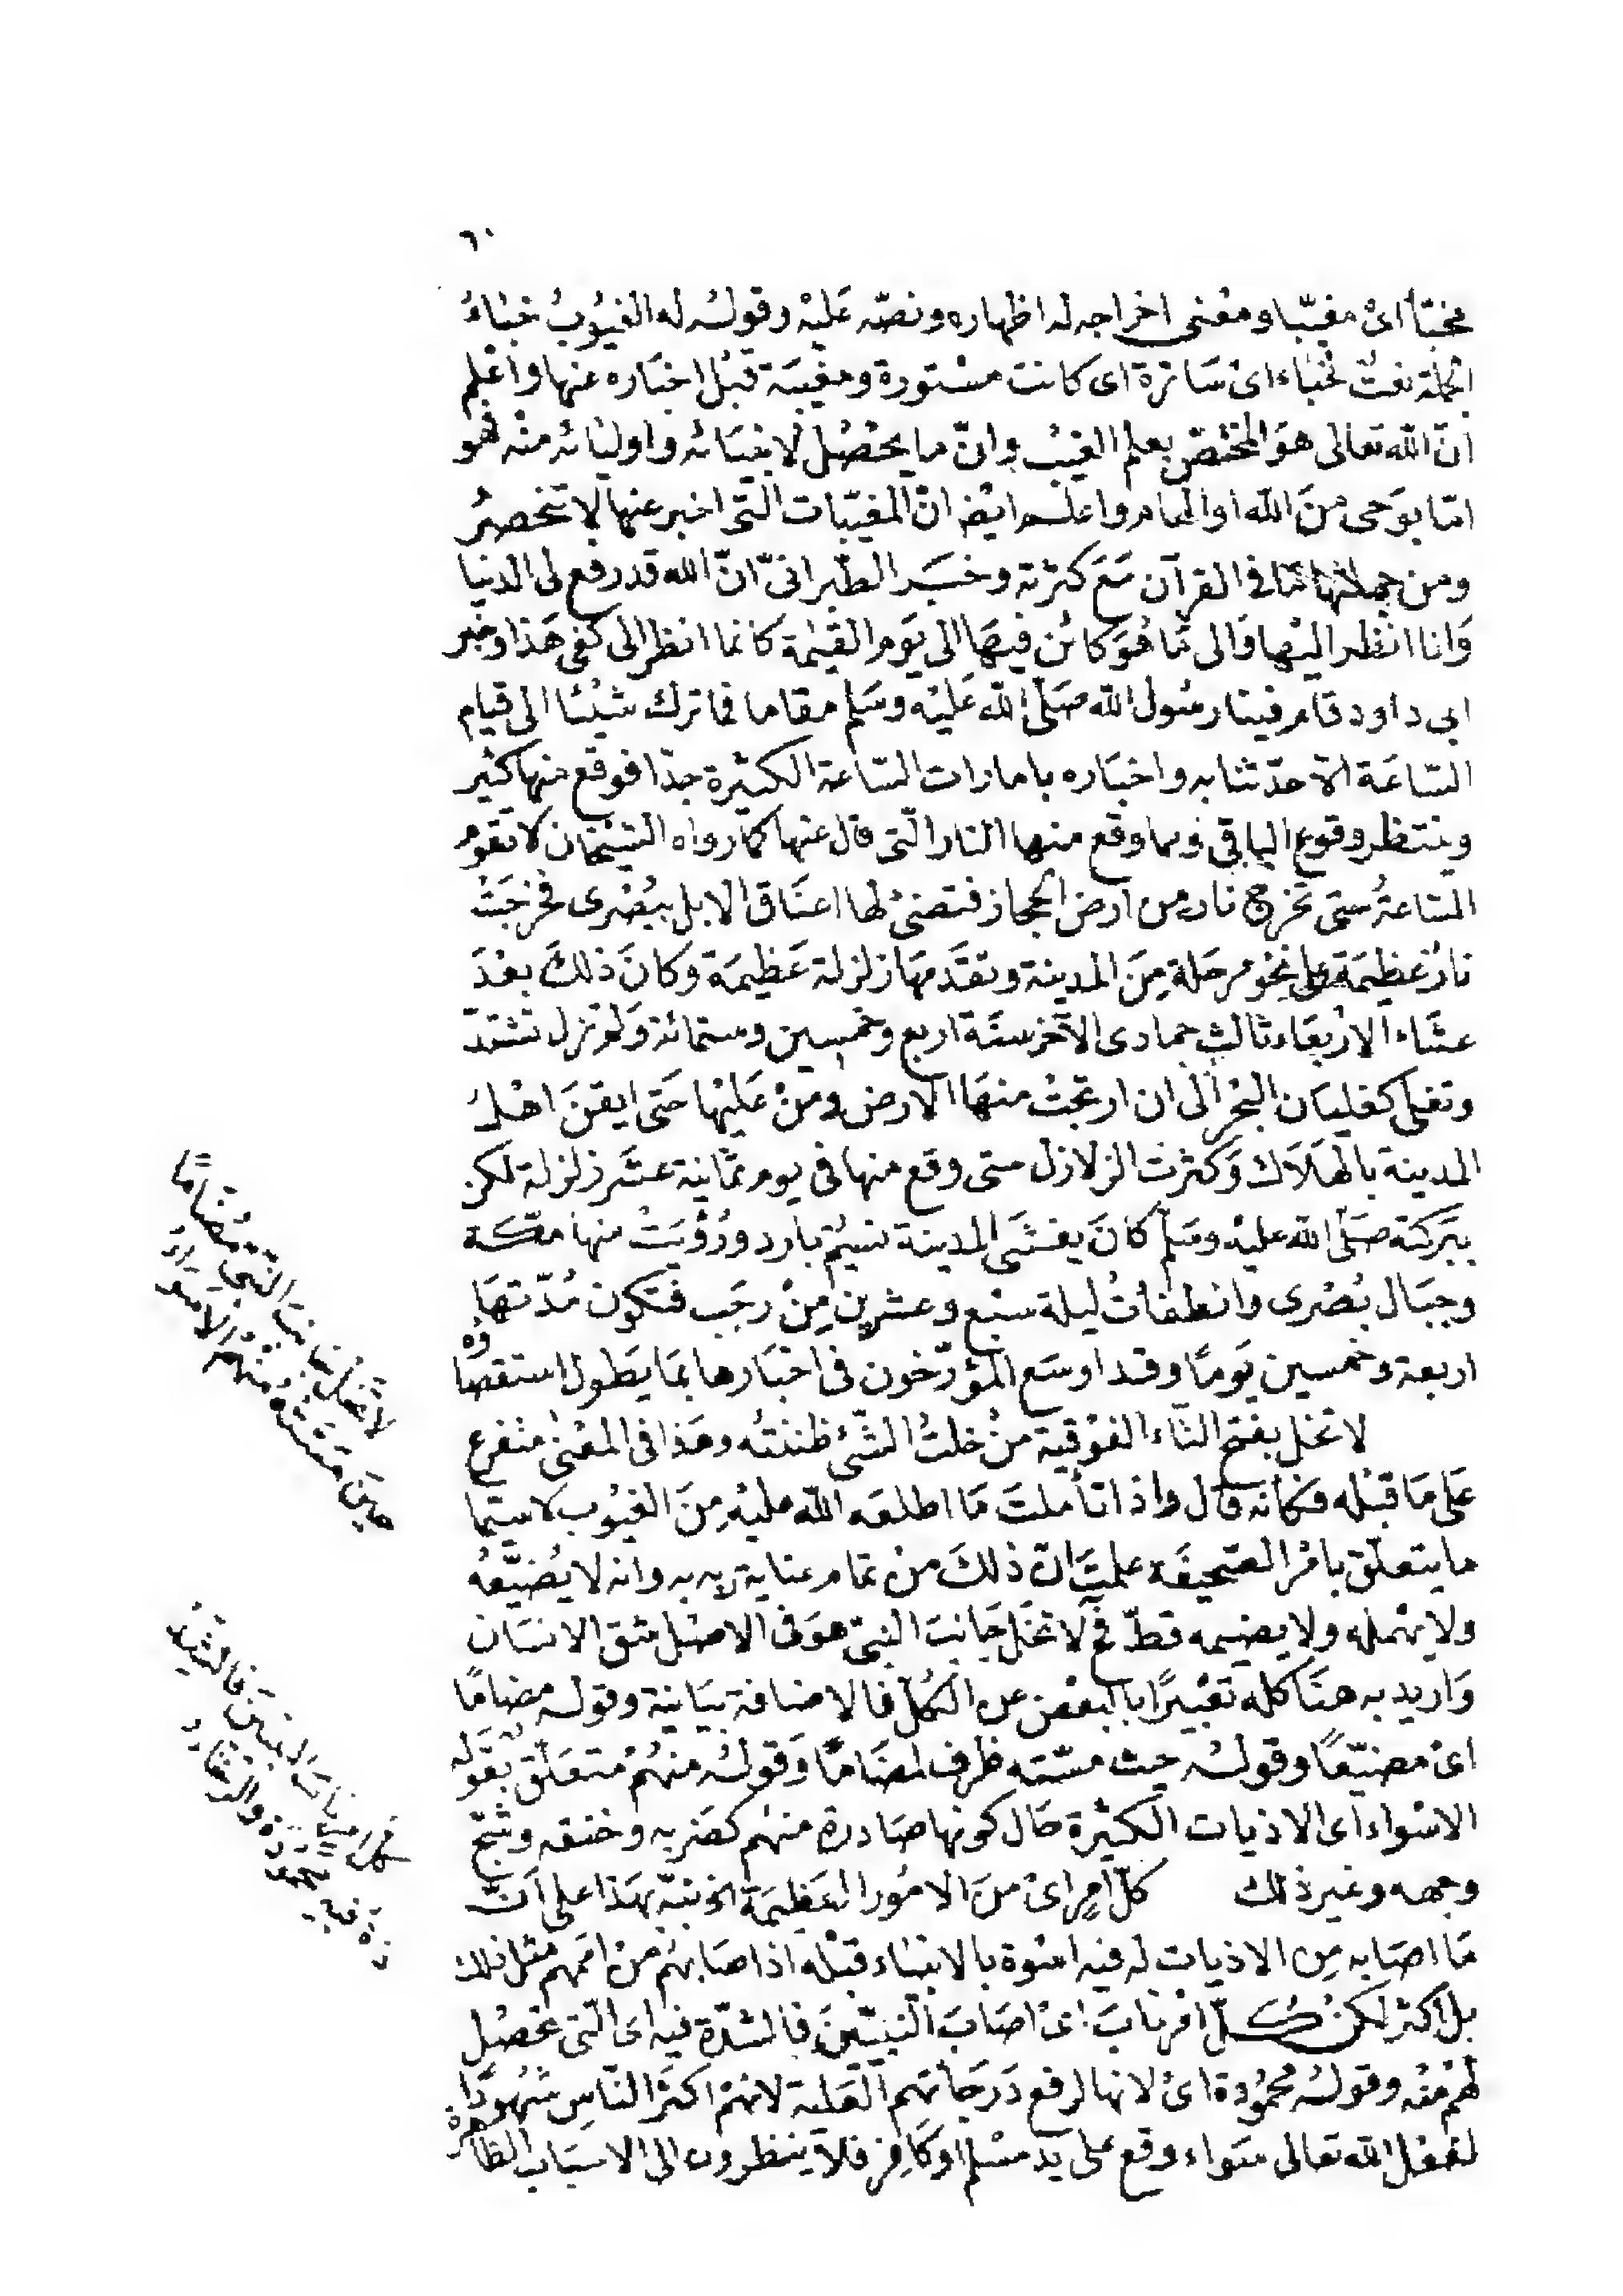 ٦٠
مخبّأ اىْ مغيّبا ومعْنى اخراجه له اظهاره ونصّه عَليْه وقولُه له الغيُوبُ خبَاءُ
الجملة نعتٌ لخباء اىْ سَاترة اى كانت مسْتورة ومغيّبة قبْل اخبَاره عنها واعْلم
انّ الله تعالى هوَ المختصّ بعلم الغيْب وانّ ما يحْصُل لانبيَائه واوليَائه منْه فهو
امّا بوَحى منَ الله او الهام واعلم ايضْا انّ المغيّبات التّى اخبر عنها لا تنحصرُ
ومن جملتها ما فى القرآن مَعَ كثرته وخبَر الطّبرانىّ انّ الله قد رفع لى الدنيا
وَانا انظر اليْها وَالى مَا هُوَ كائن فيهَا الى يَوم القيٰمة كانما انظر الى كفى هَذا وخبر
ابى داود قام فينا رسُول الله صَلّى الله عَليْه وسَلم مقاما فما ترك شيْئا الى قيام
السّاعَة الاّ حدّثنا به واخبَاره بامارات السّاعة الكثيْرة جدّا فوقع منها كثير
وينتظر وقوع الباقى ومما وقع منها النار الّتى قال عنها كما رواه الشيْخان لا تقوُم
السّاعةُ حتى تخرج نار من ارض الحجاز فتضئ لها اعنَاق الابل ببُصْرى فخرجَتْ
نارٌ عظيمَة على نحْو مرحَلة مِنَ المدينة وتقدّمهَا زلزلة عَظيمَة وكانَ ذلكَ بعْدَ
عشَاء الاربعَاء ثالث جمادى الآخر سنَة اربع وخمسين وستمائة وَلم تزل تشتدّ
وتغلى كغليَان البحْر الى ان ارتجتْ منهَا الارض ومنْ عَليْها حَتى ايقنَ اهْلُ
المدينة بالهَلَاك وَكثرت الزلازل حتى وقع منها فى يوم ثمَانية عشَر زلزلة لكن
ببَركته صَلّى الله عليْه وسَلم كانَ يغشَى المدينة نسيْم بارد ورُؤيَتْ منها مكَة
وجبَال بُصْرى وانطفأتْ ليلة سبْع وعشرين مِنْ رجَب فتكون مُدّتهَا
اربعة وخمسين يَومًا وقد اوسَع المؤرّخون فى اخبَارها بمَا يَطول استقصاؤه
لا تخل بفتح التّاء الفوْقية منْ خلتُ الشّئ ظننتُه وهذا فى المعْنى متفرع
عَلى مَا قبْله فكانّه قال واذا تأملتَ مَا اطلعَه الله عليْه مِنَ الغيُوب لا سيّما
ما يتعلّق بامْر الصّحيفَة علمتَ انّ ذلكَ منْ تمام عناية ربه به وانه لا يُضيّعُه
ولا يهْمله ولا يضيمه قطّ فلَا تخَل جَانبَ النّبىّ هوَ فى الاصْل شق الانسَان
وَاريد به هنَا كله تعْبيْرًا بالبعْض عن الكُل فالاضافة بيَانية وقوله مضامًا
اىْ مضيّعًا وقولُه حيث مسّته ظرف لمضَامًا وَقولُه منهُمْ متعَلّق بقوْله
الاسْواء اى الاذيات الكثيْرة حَال كونها صَادرة منهُم كضَربه وخنقه وشجّ
وجهه وغير ذلك كلّ امرٍ اىْ منَ الامُور العَظيمَة الخ نبّه بهَذا على اَنّ
مَا اصَابه مِن الاذيات له فيْه اسْوة بالانبيَاء قبْله اذ اصَابهُم منْ اممهم مثل ذلك
بل اكثر لكنْ كُلّ امْر نابَ اىْ اصَابَ النّبيّينَ فالشدّة فيْه اى الّتى تحْصُل
لهُمْ منْه وقولُه محمُودة اىْ لانها لرفع دَرجَاتهم العَلية لانهمْ اكثرَ النّاسِ شهُودًا
لفعْل الله تعالى سَواء وقع على يد مسْلم اوْ كَافِر فلا ينظرون الى الاسبَاب الظاهرة
لا تخَل جَانبَ النّبىّ مُضَامًا
حِينَ مَسّتْهُ مِنْهُمُ الاسْوَاءُ
كلّ امر نابَ النّبيّينَ فالشدّ
ة فيه محمودة والرّخاء